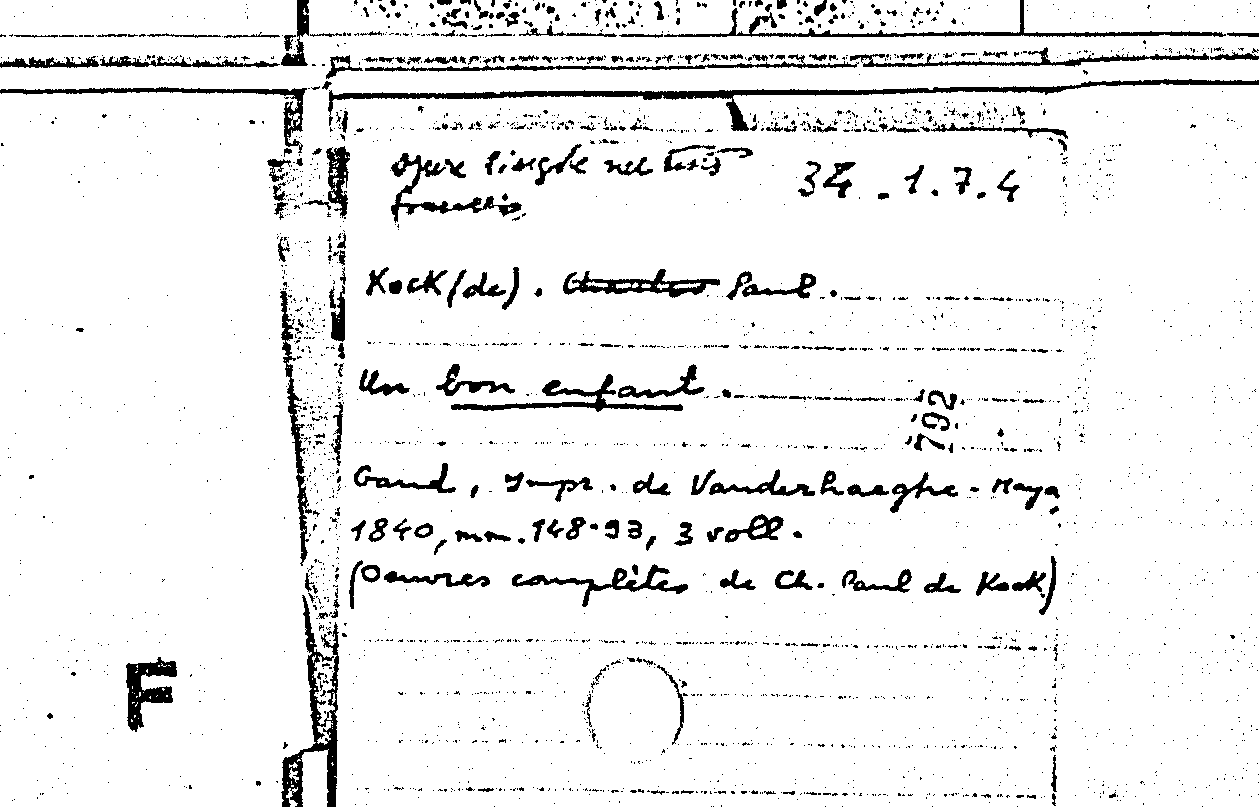 opere singole nel testo
francese
34.1.7.4
Kock (de). Charles Paul.
Un bon enfant.
792
Gand, Impr. de Vanderhaeghe-Maya,
1840, mm. 148·93, 3 voll.
(Oeuvres complètes de Ch. Paul de Kock)
F